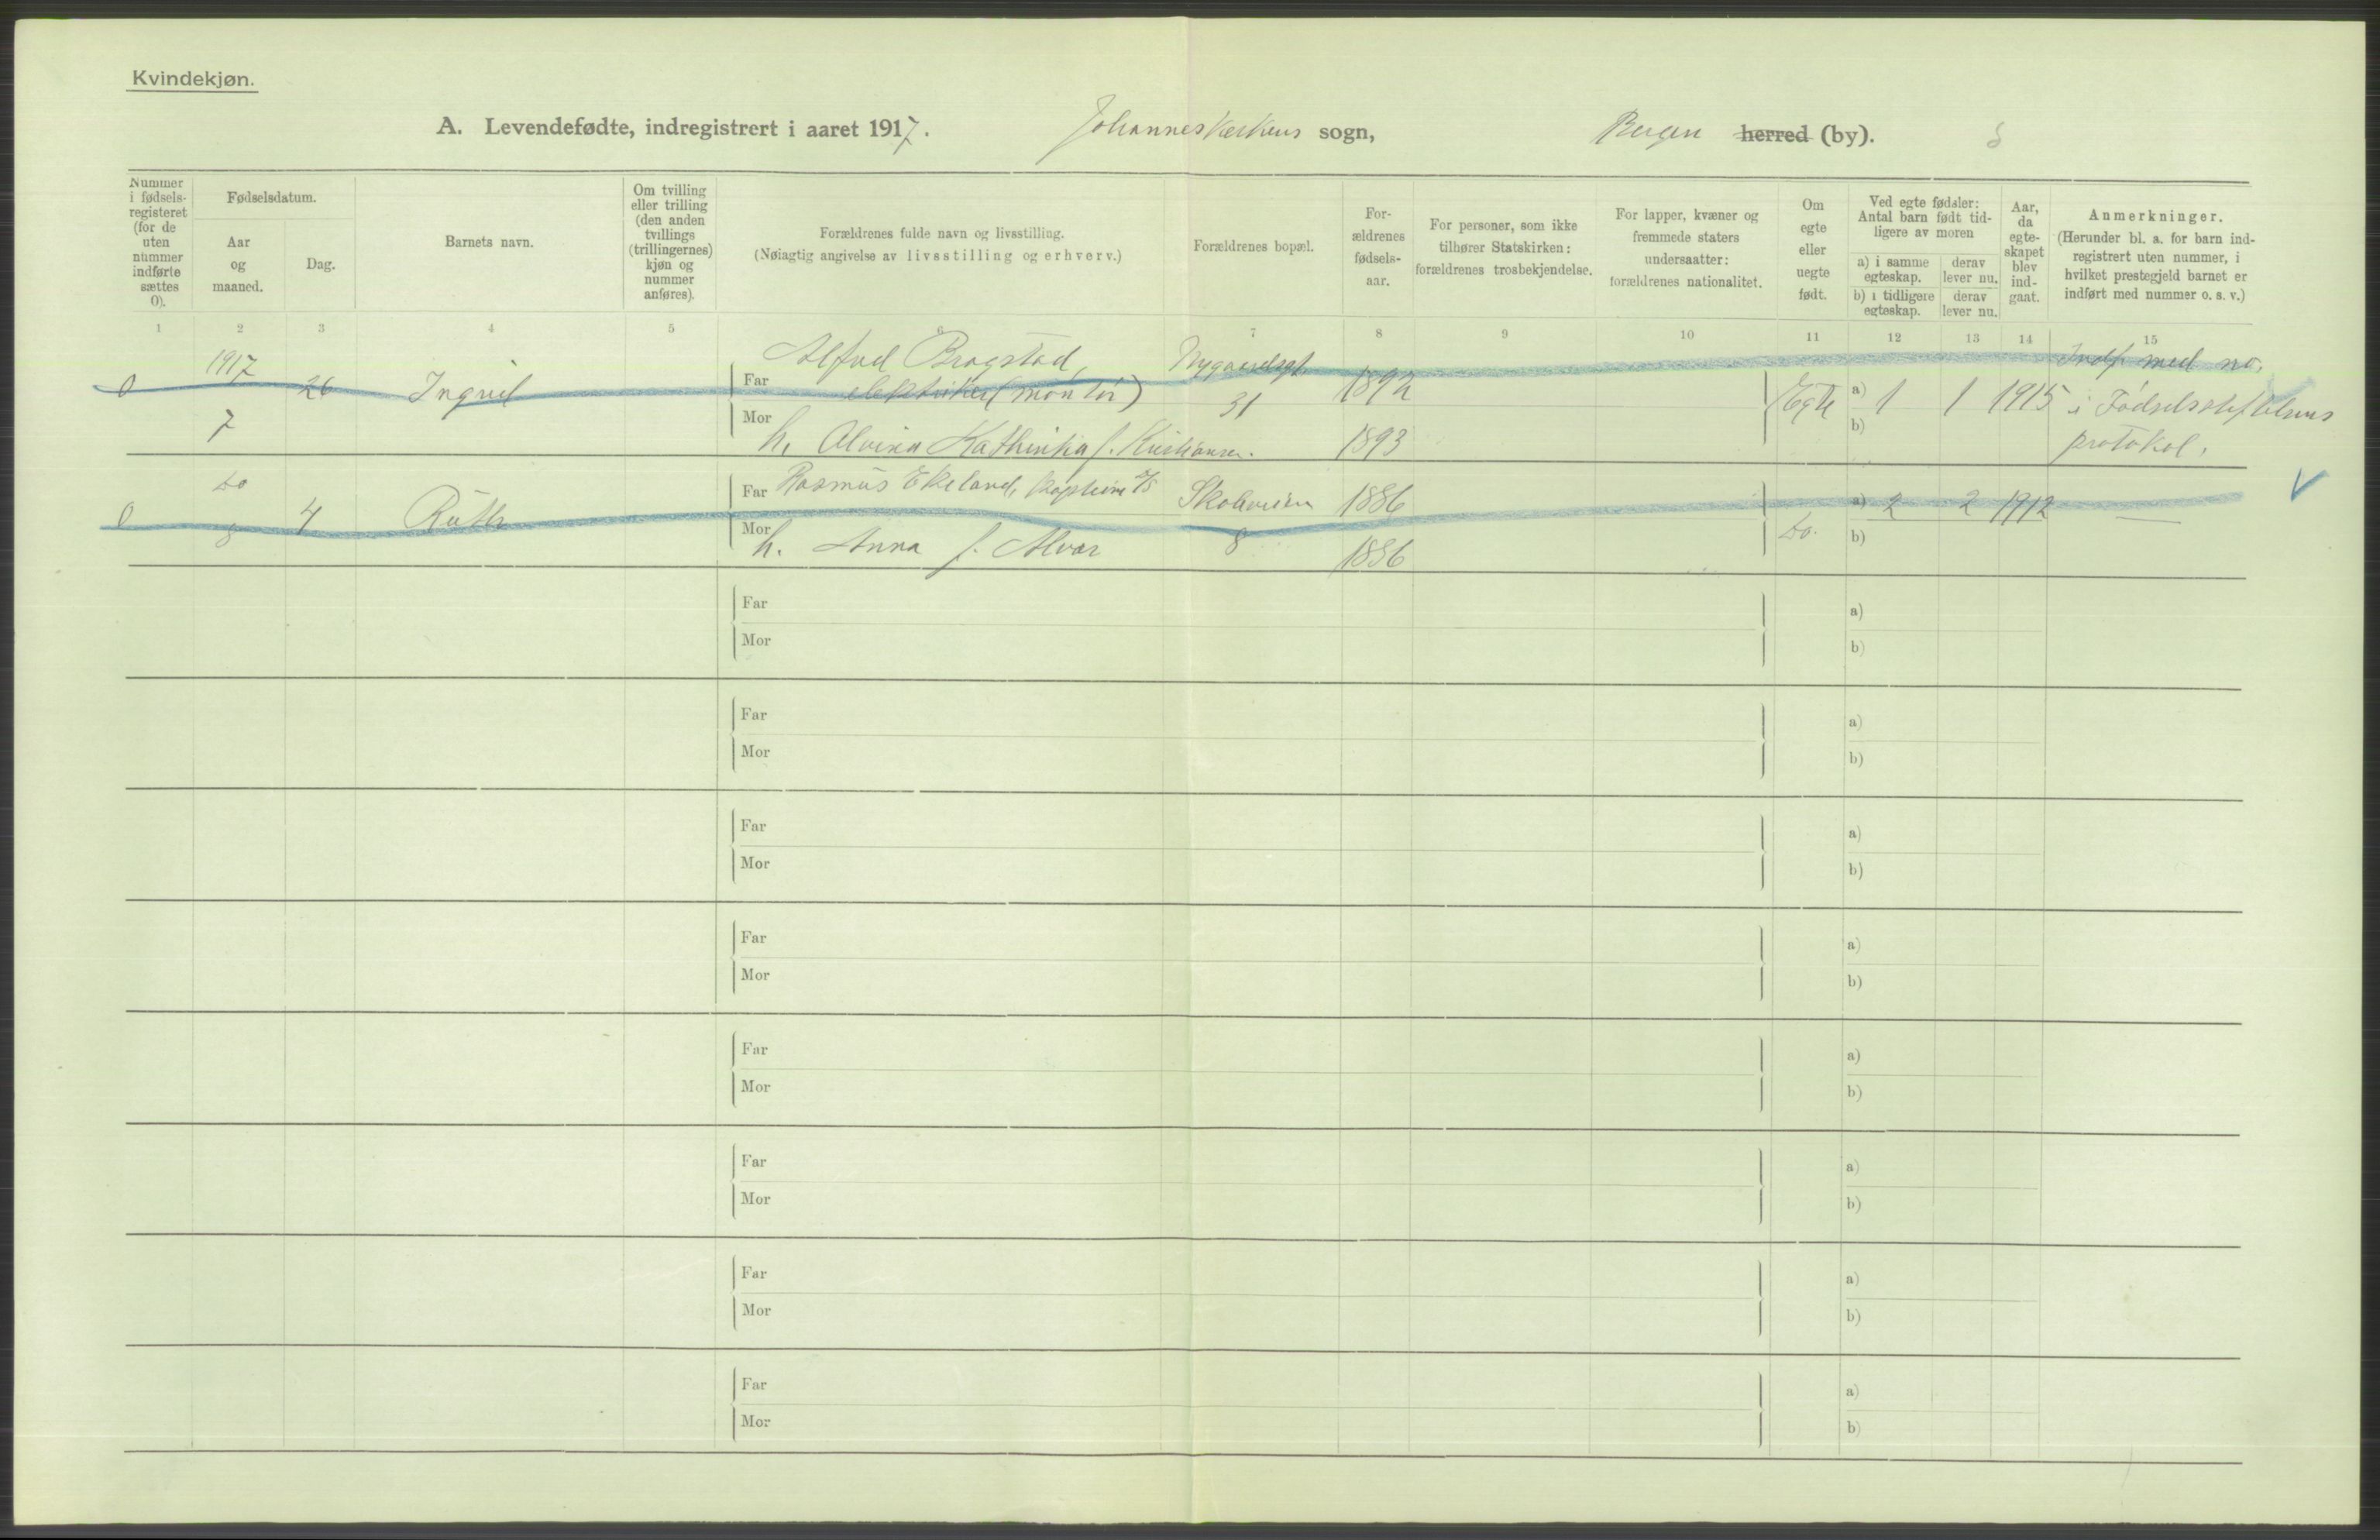 Kvindekjøn.
A. Levendefødte, indregistrert i aaret 1917. Johanneskirkens sogn, Bergen herred (by). 8
Nummer i fødsels-registeret (for de uten nummer indførte sættes 0).
Fødselsdatum.
Aar og maaned.
Dag.
Barnets navn.
Om tvilling eller trilling (den anden tvillings (trillingernes) kjøn og nummer anføres).
Forældrenes fulde navn og livsstilling.
(Nøiagtig angivelse av livsstilling og erhverv.)
Forældrenes bopæl.
For-ældrenes fødsels-aar.
For personer, som ikke tilhører Statskirken: forældrenes trosbekjendelse.
For lapper, kvæner og fremmede staters undersaatter: forældrenes nationalitet.
Om egte eller uegte født.
Ved egte fødsler: Antal barn født tid-ligere av moren
a) i samme egteskap.
derav lever nu.
b) i tidligere egteskap.
derav lever nu.
Aar, da egte-skapet blev ind-gaat.
Anmerkninger.
(Herunder bl. a. for barn ind-registrert uten nummer, i hvilket prestegjeld barnet er indført med nummer o. s. v.)
1 2 3 4 5 6 7 8 9 10 11 12 13 14 15
0 1917 7 26 Ingrid
Far Alfred Bragstad, elektriker (montør) Nygaardsgt. 31 1892
Mor h. Alvina Kathinka f. Kristiansen. 1893
Egte a) 1 1 1915
b)
Indf. med no. i Fødselsstiftelsens protokol.
0 do 8 4 Ruth
Far Rasmus Ekeland, kaptein D/S Skoleveien 8 1886
Mor h. Anna f. Alver 1886
do. a) 2 2 1912 —
b)
Far a)
Mor b)
Far a)
Mor b)
Far a)
Mor b)
Far a)
Mor b)
Far a)
Mor b)
Far a)
Mor b)
Far a)
Mor b)
Far a)
Mor b)